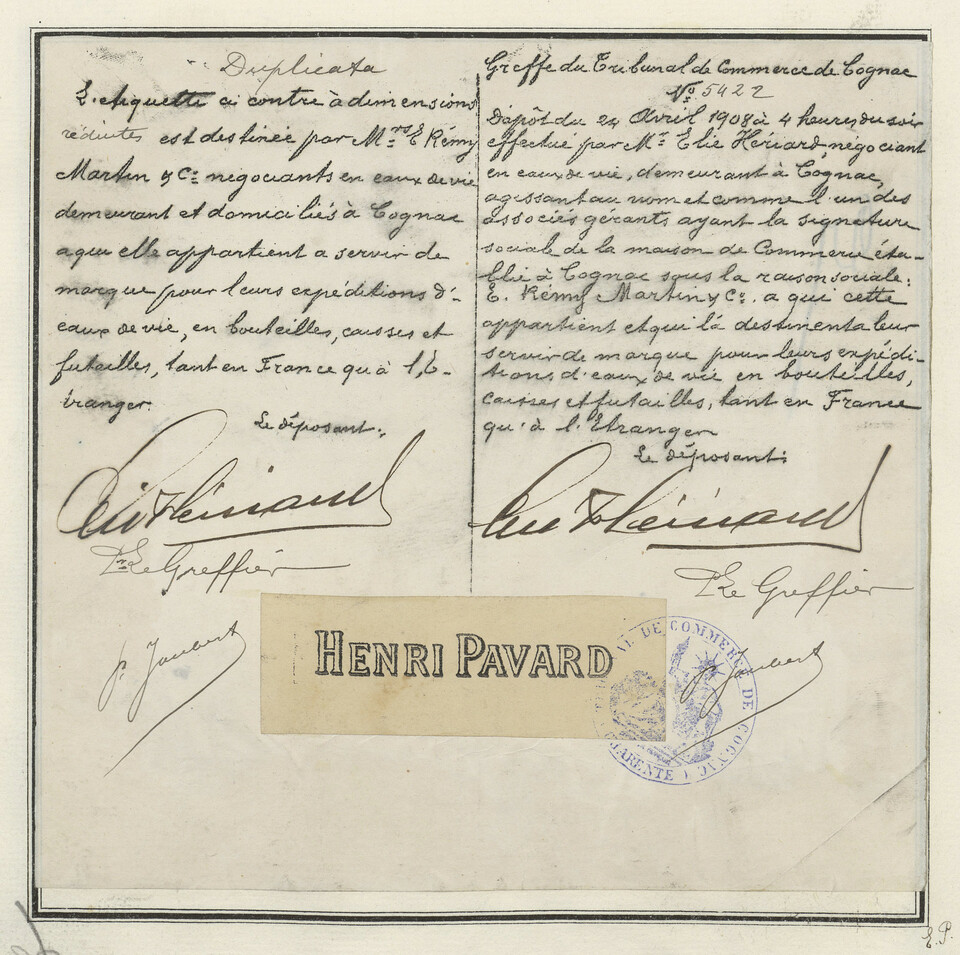 Duplicata
L'etiquette ci contre à dimensions
réduites est destinée par Mrs E Rémy
Martin & Cie negociants en eaux de vie
demeurant et domiciliés à Cognac
a qui elle appartient a servir de
marque pour leurs expéditions d'-
eaux de vie, en bouteilles, caisses et
futailles, tant en France qu'à l'E-
tranger.
Le déposant:
Pr Le Greffier
Greffe du Tribunal de Commerce de Cognac
No 5422
Dépôt du 24 Avril 1908 à 4 heures du soir
effectué par Mr Elie Hériard, négociant
en eaux de vie, demeurant à Cognac,
agissant au nom et comme l'un des
associés gérants ayant la signature
sociale de la maison de Commerce éta-
blie à Cognac sous la raison sociale:
E. Rémy Martin & Co. a qui cette
appartient et qui la destinent a leur
servir de marque pour leurs expédi-
tions d'eaux de vie en bouteilles,
caisses et futailles, tant en France
qu'à l'Etranger
Le déposant:
Pr Le Greffier
HENRI PAVARD
TRIBUNAL DE COMMERCE DE COGNAC
(CHARENTE)
E.P.